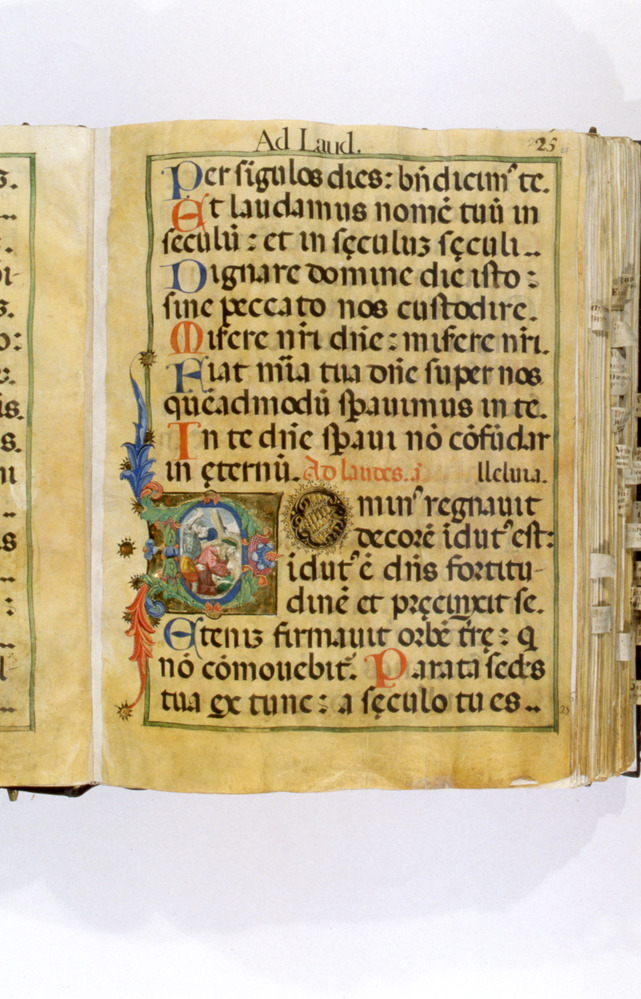 Ad Laud.
25
Per sigulos dies: bn̄dicim⁹ te.
Et laudamus nomē tuū in
seculū: et in sęculuʒ sęculi..
Dignare domine die isto:
sine peccato nos custodire.
Misere nr̄i dn̄e: misere nr̄i.
Fiat mīa tua dn̄e super nos
quēadmodū sꝑauimus in te.
In te dn̄e sꝑaui nō cōfūdar
in ęternū. Ad laudes. a lleluia.
min⁹ regnauit
decorē īdut⁹ est:
idut⁹ ē dn̄s fortitu-
dinē et pręcinxit se.
Eteniʒ firmauit orbē tr̄ę: q
nō cōmouebit᷑. Parata sedes
tua ex tunc: a sęculo tu es..